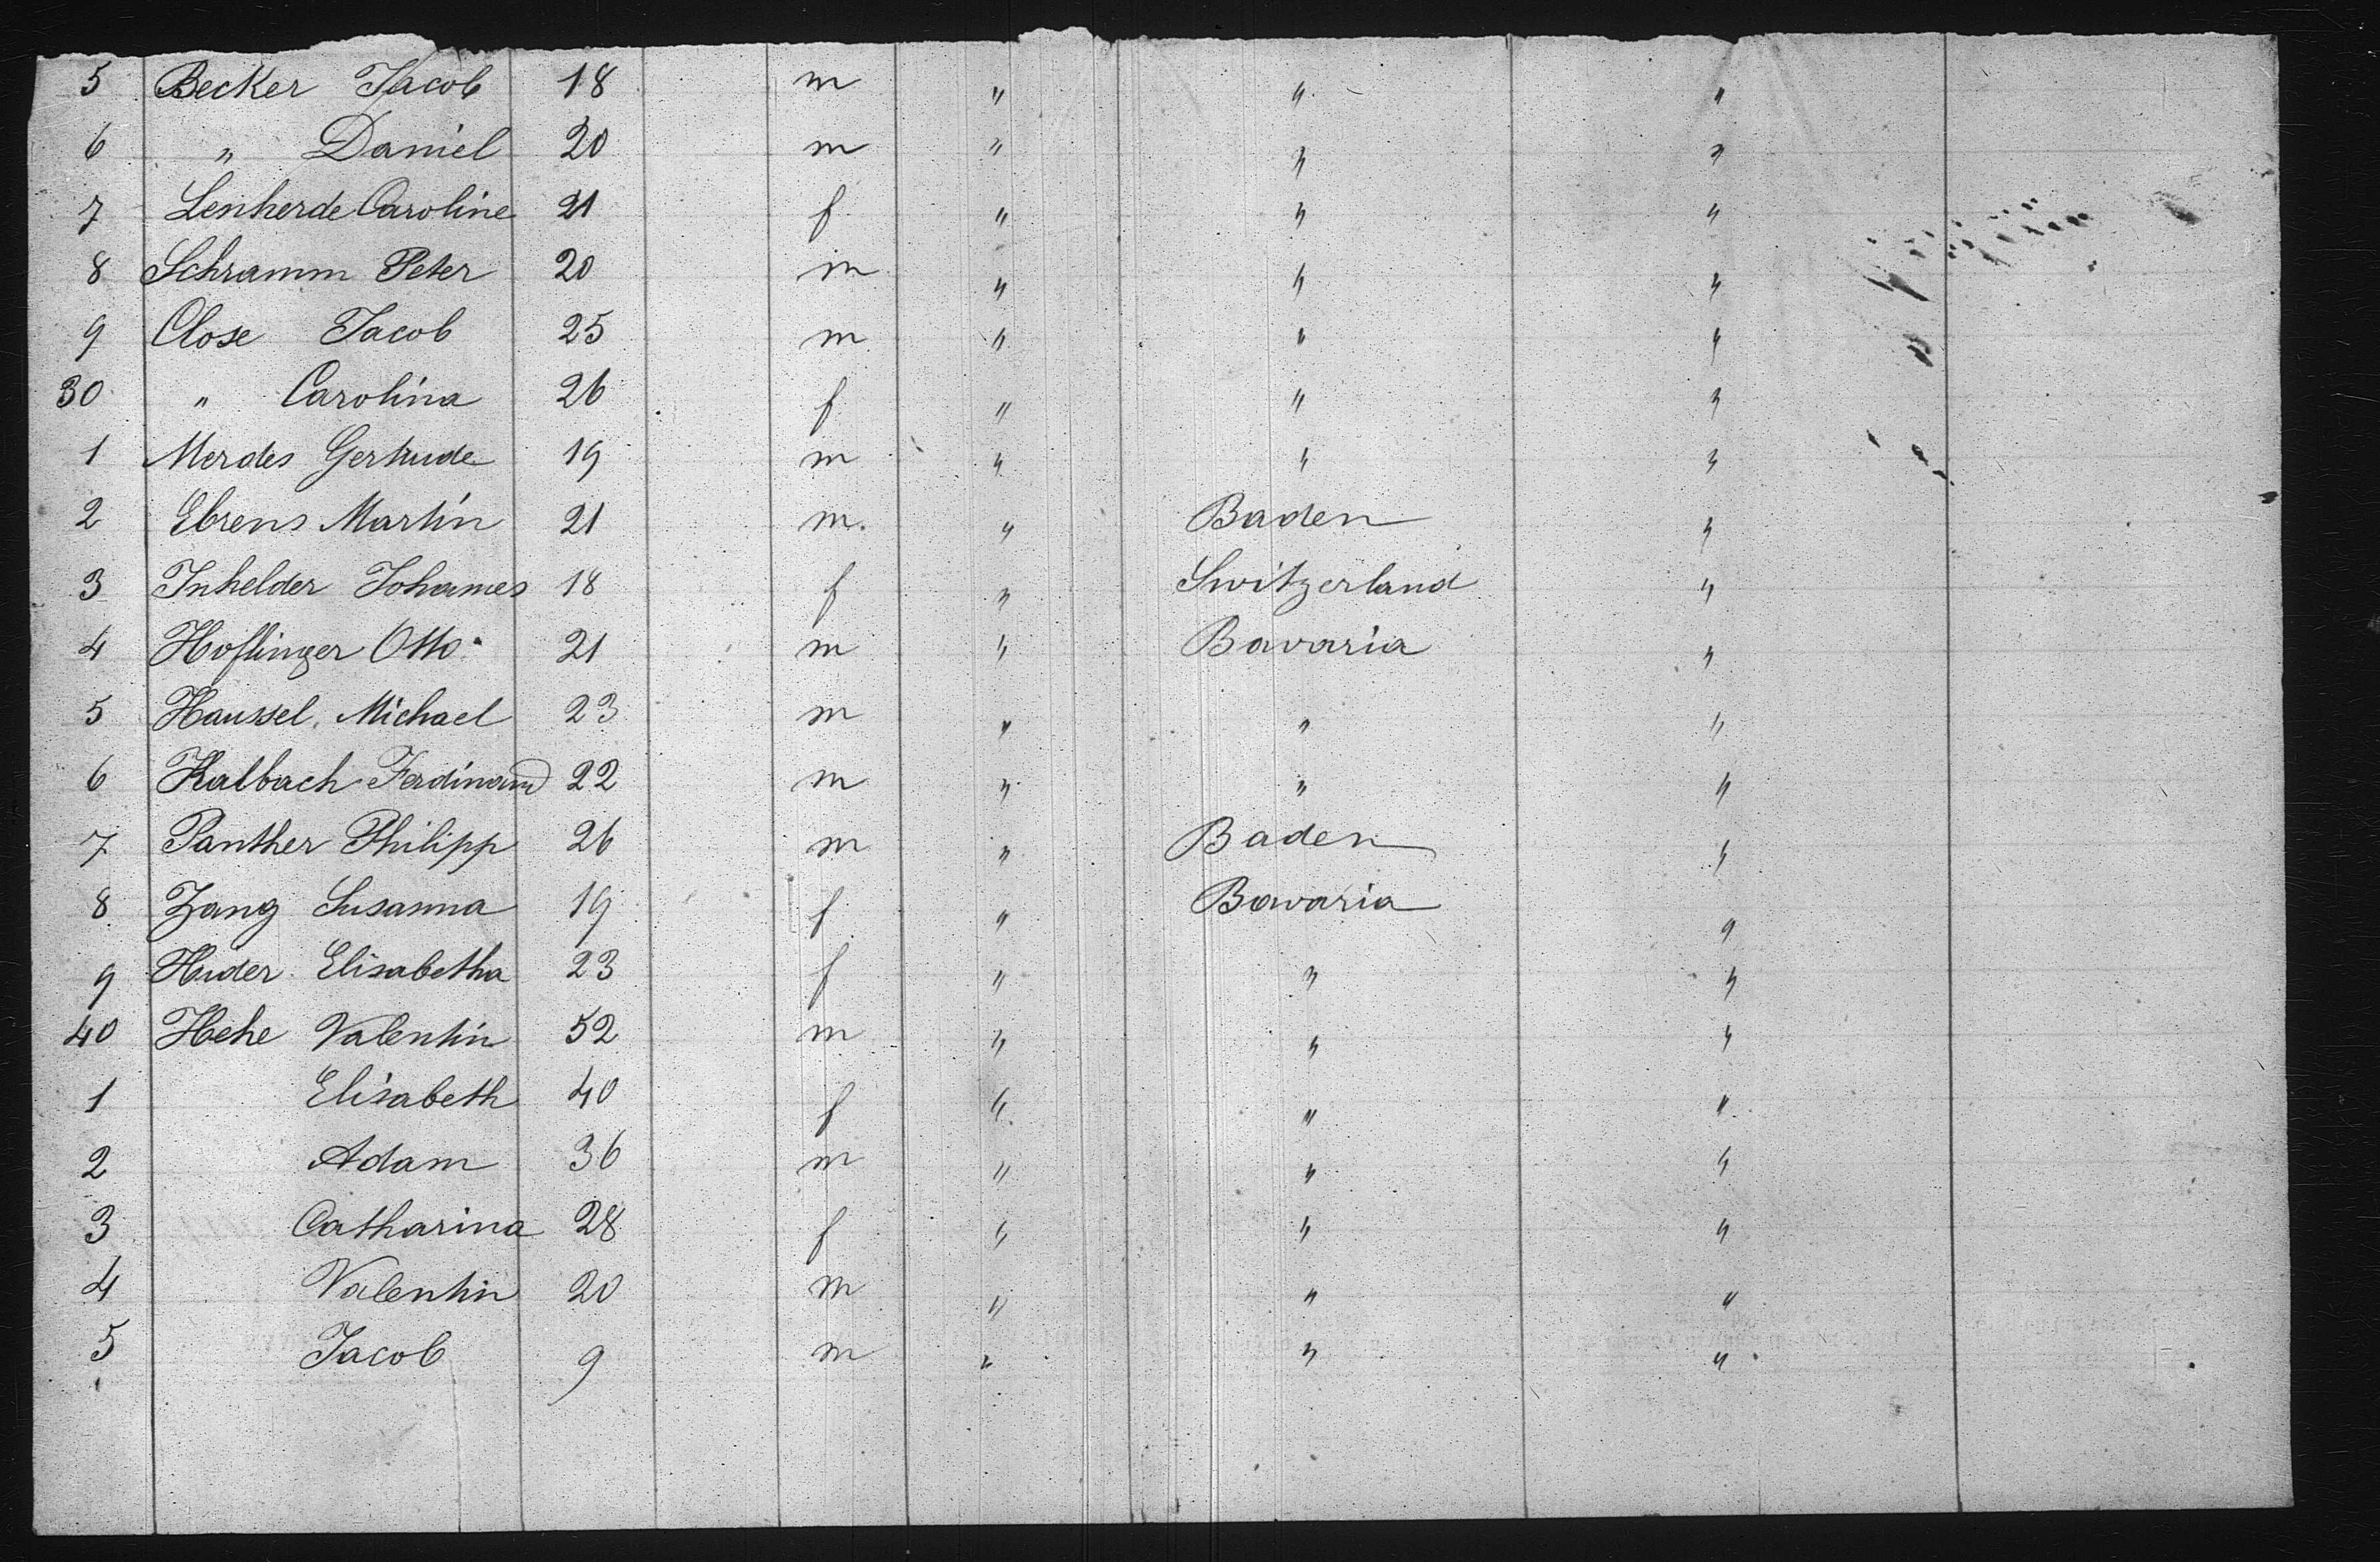 5 Becker Jacob 18 m " " "
6 " Daniel 20 m " " "
7 Lenherde Caroline 21 f " " "
8 Schramm Peter 20 m " " "
9 Close Jacob 25 m " " "
30 " Carolina 26 f " " "
1 Merdes Gertrude 19 m " " "
2 Ebrens Martin 21 m. " Baden "
3 Inhelder Johannes 18 f " Switzerland "
4 Hoflinger Otto 21 m " Bavaria "
5 Haussel Michael 23 m " " "
6 Kalbach Ferdinand 22 m " " "
7 Panther Philipp 26 m " Baden "
8 Zang Susanna 19 f " Bavaria "
9 Huder Elisabetha 23 f " " "
40 Hehe Valentin 52 m " " "
1 Elisabeth 40 f " " "
2 Adam 36 m " " "
3 Catharina 28 f " " "
4 Valentin 20 m " " "
5 Jacob 9 m " " "